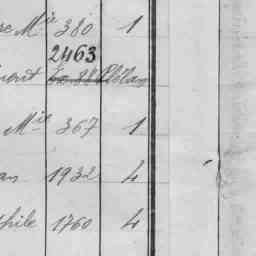 re Mie 380 1
2463
Mie 367 1
1932 4
phile 1760 4